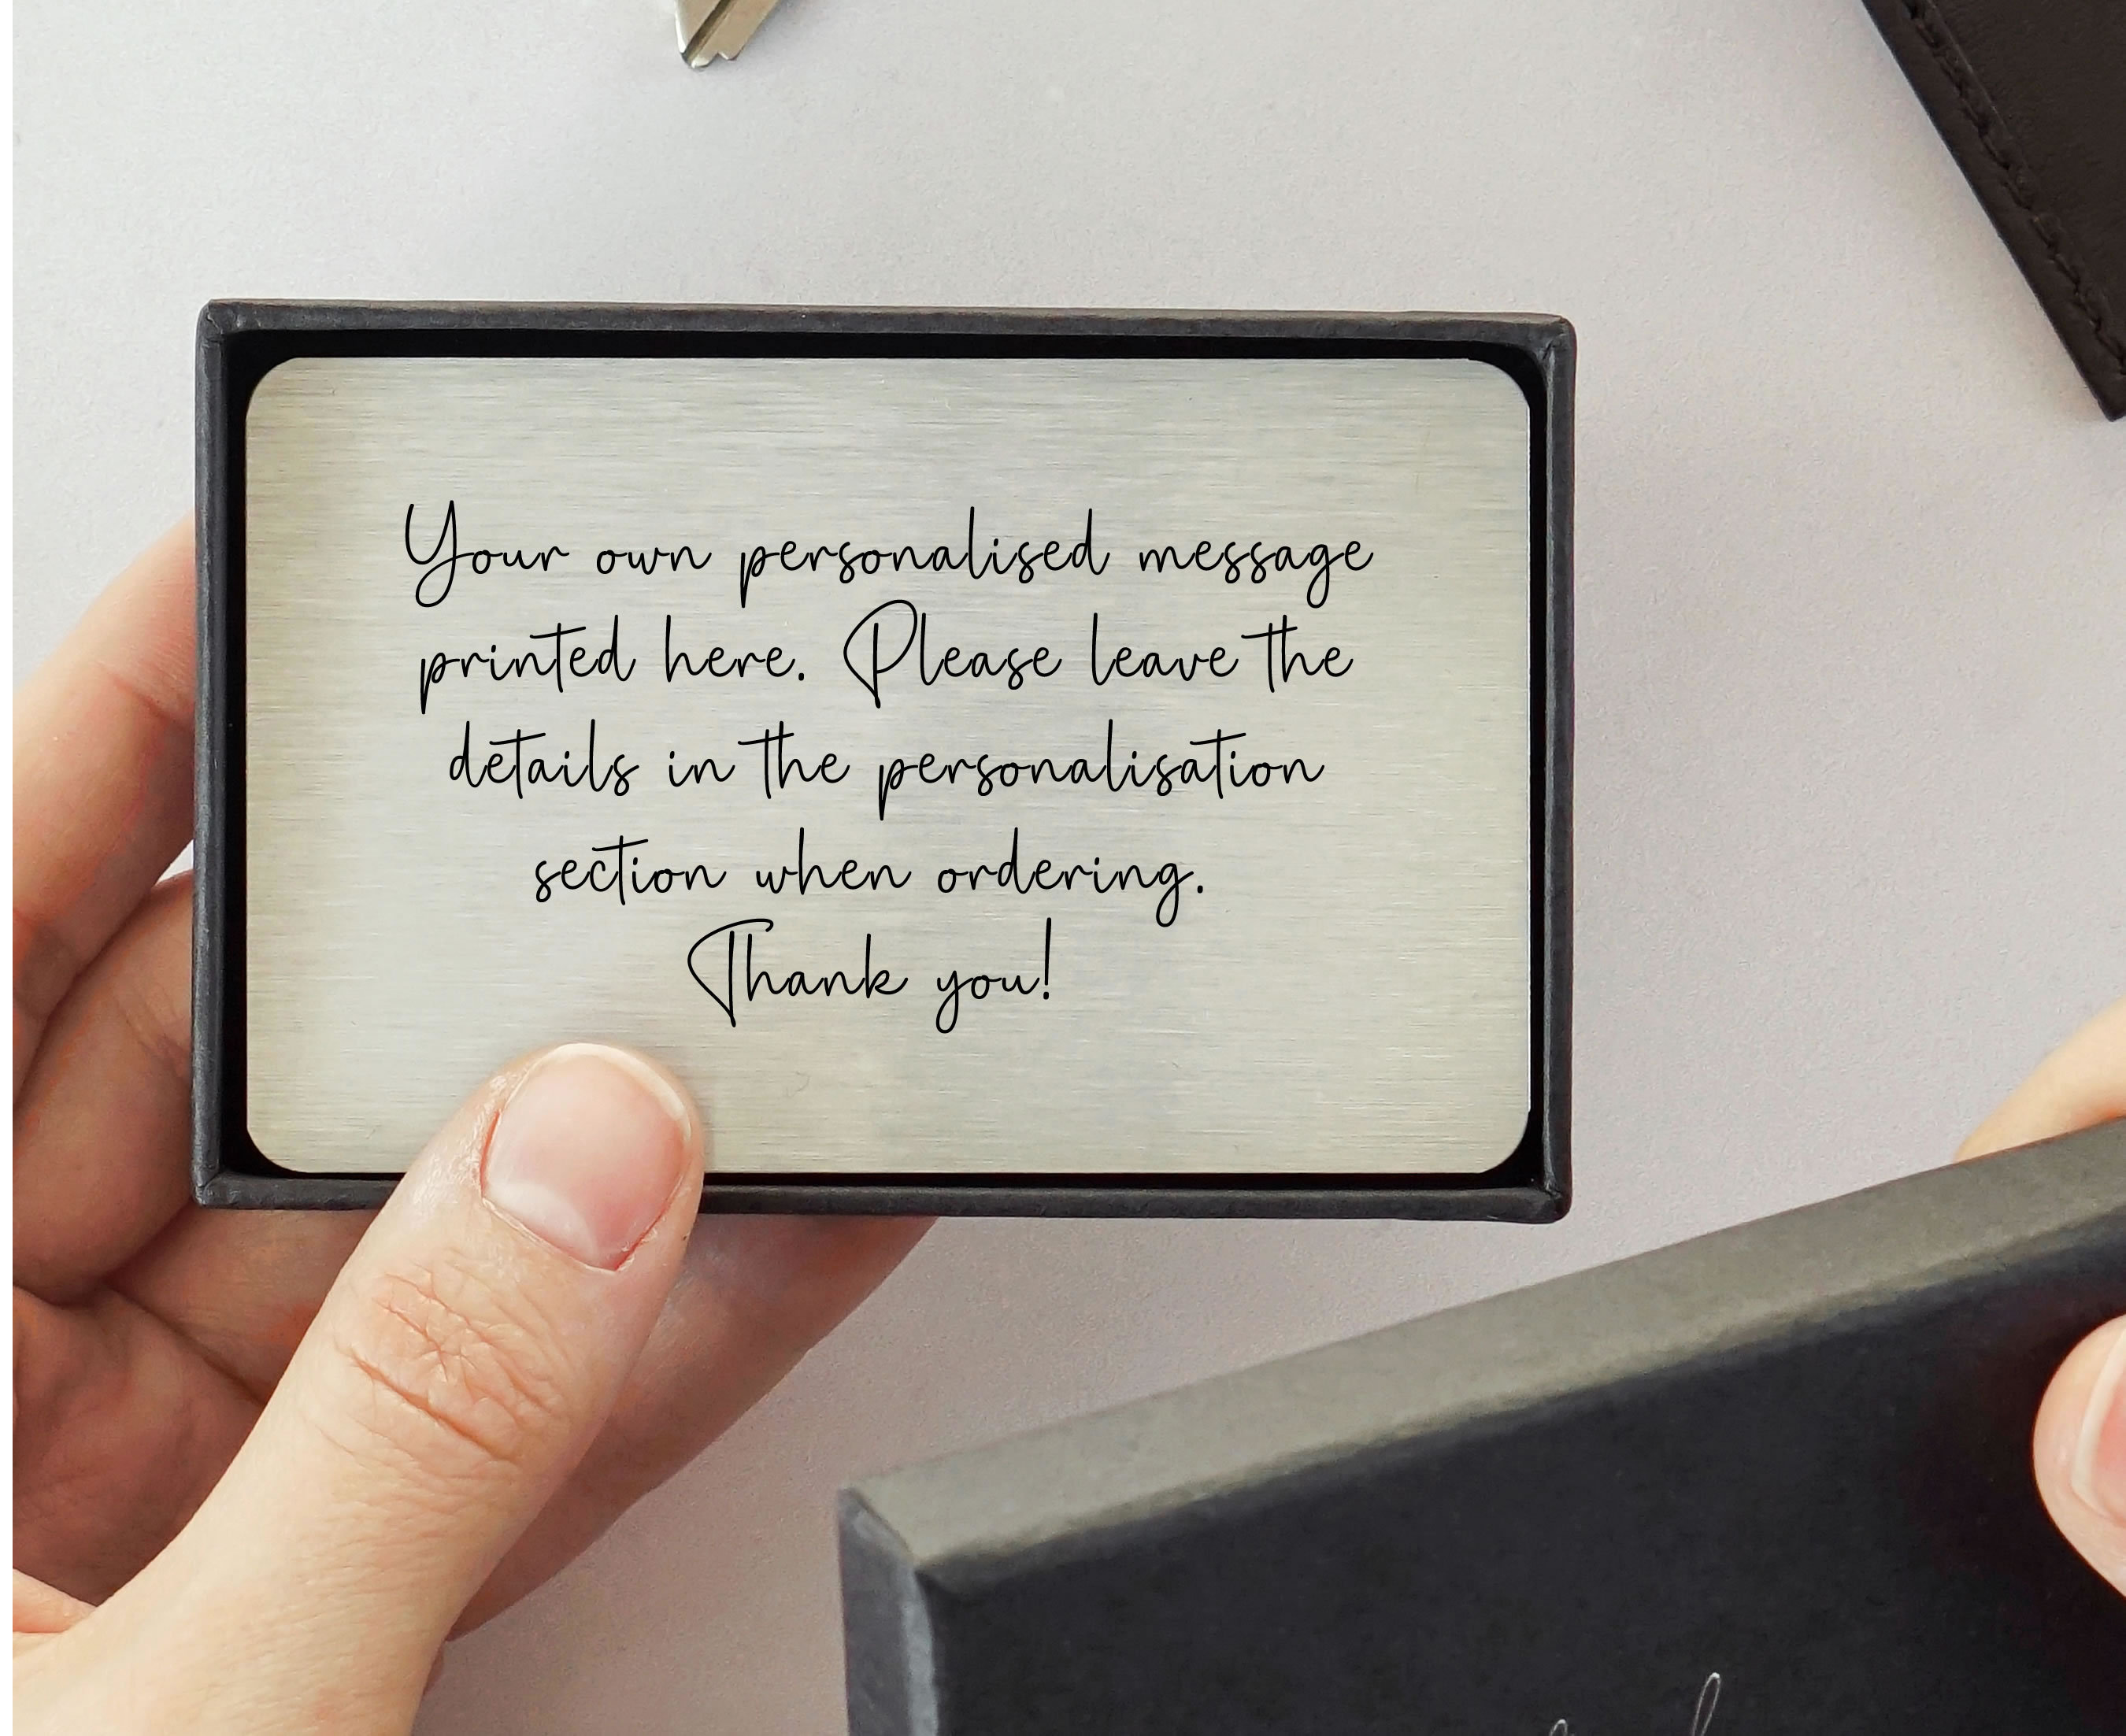 Your own personalised message
printed here. Please leave the
details in the personalisation
section when ordering.
Thank you!